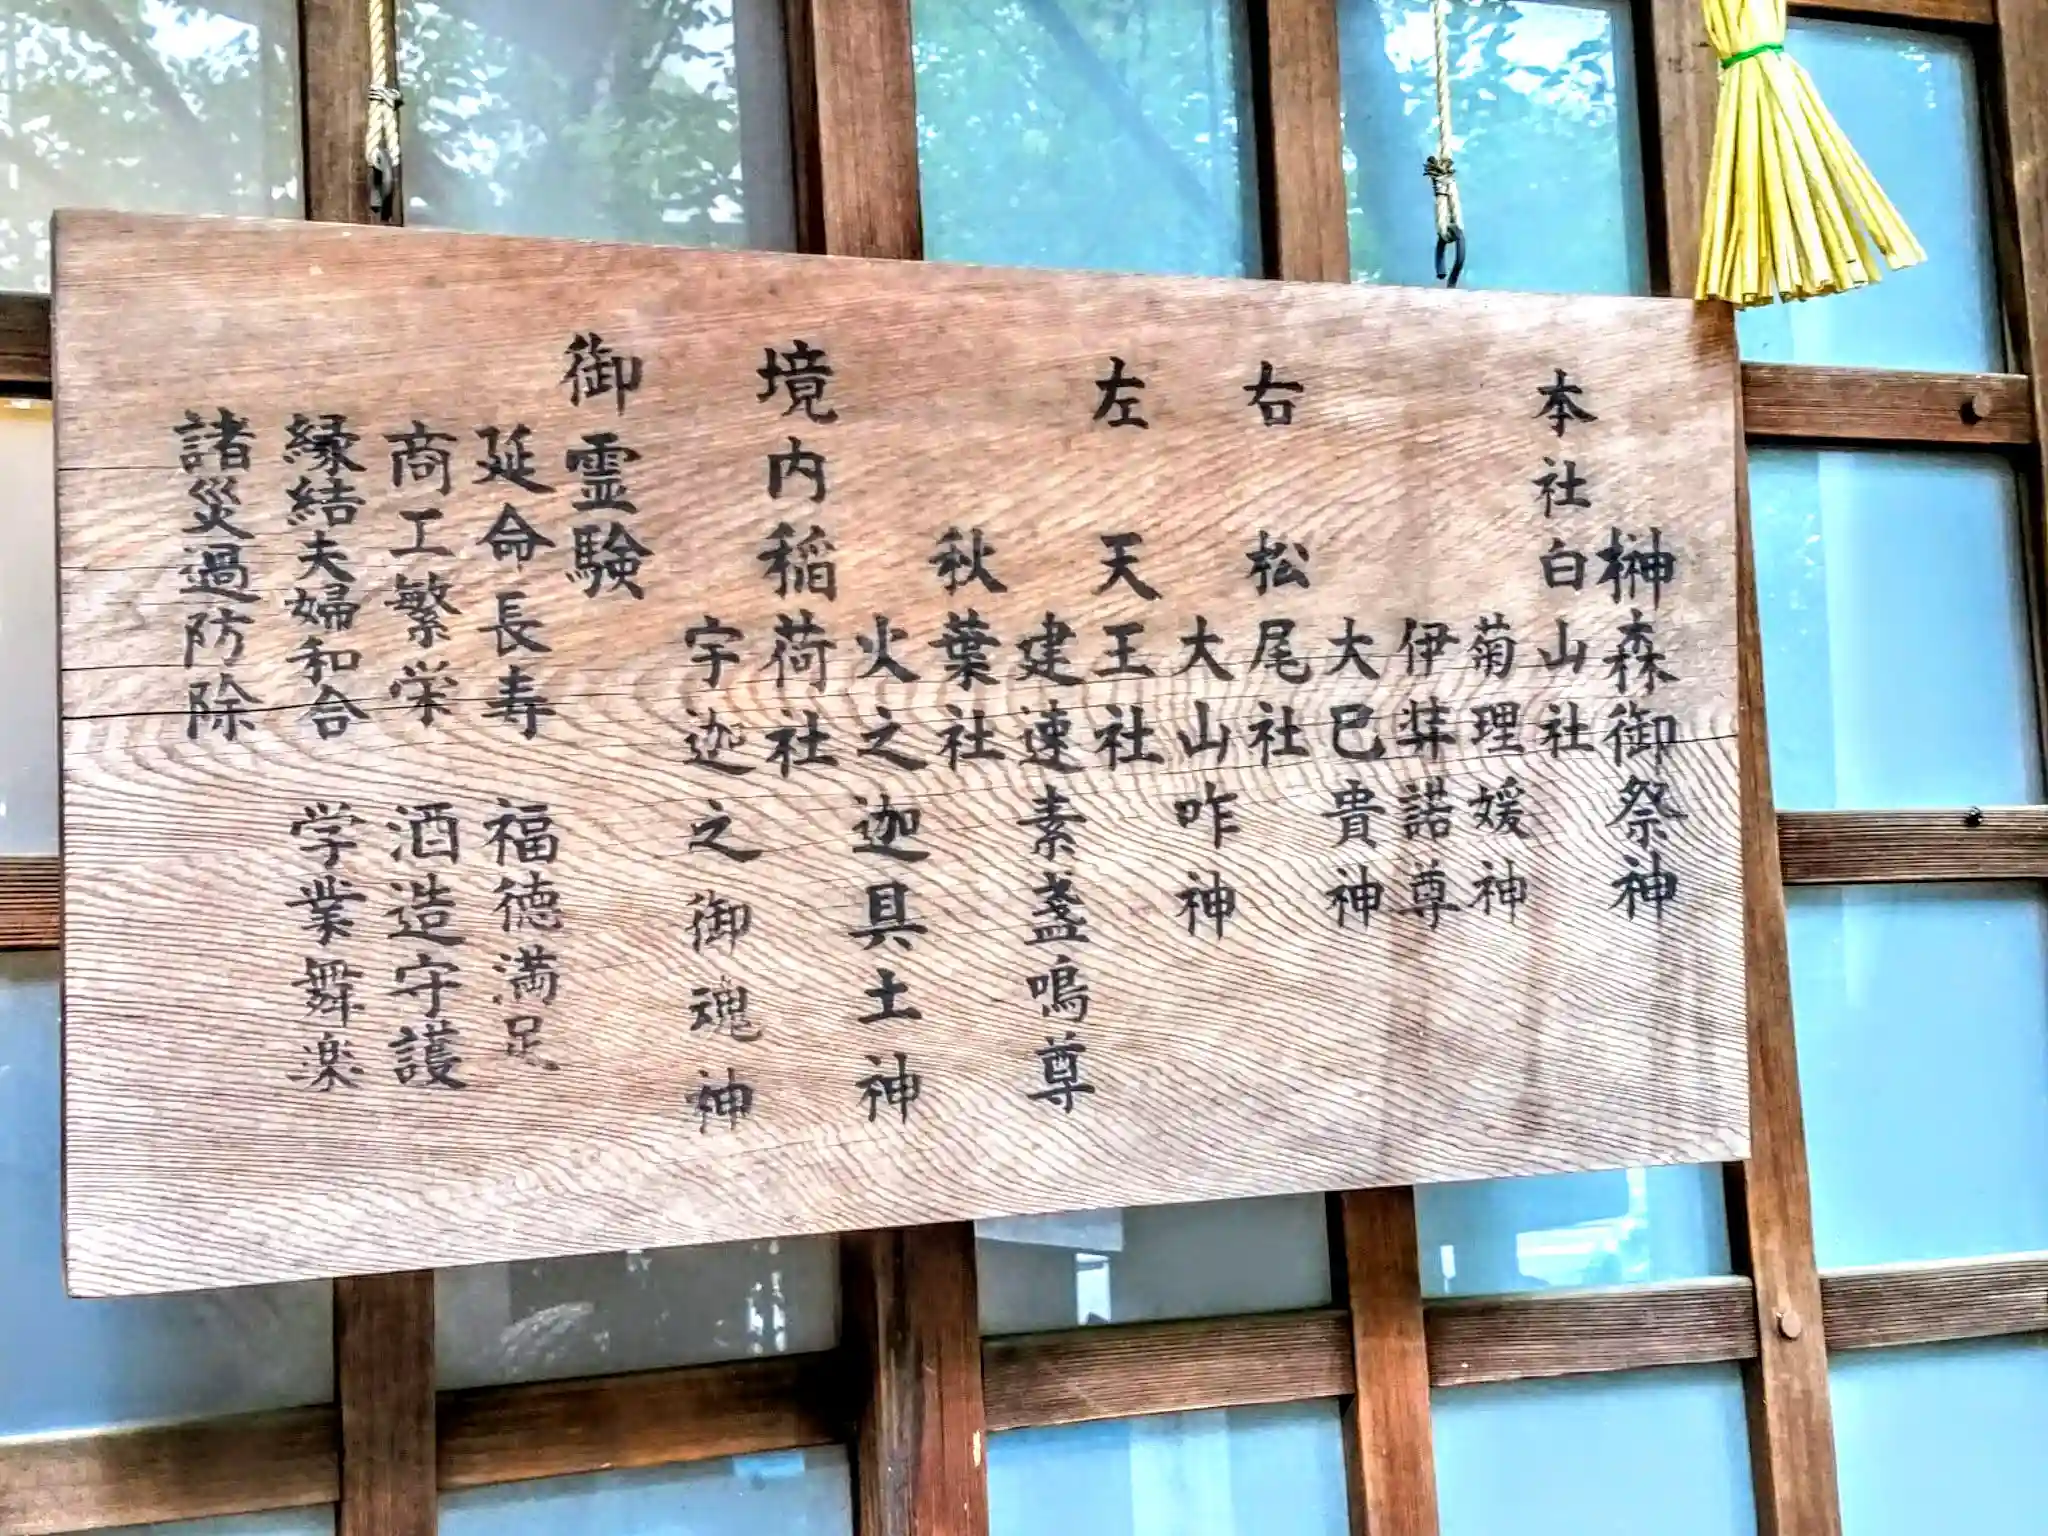 榊森御祭神
本社白山社
菊理媛神
伊弉諾尊
大己貴神
右 松尾社
大山咋神
左 天王社
建速素盞嗚尊
秋葉社
火之迦具土神
境内稲荷社
宇迦之御魂神
御霊験
延命長寿 福徳満足
商工繁栄 酒造守護
縁結夫婦和合 学業舞楽
諸災過防除